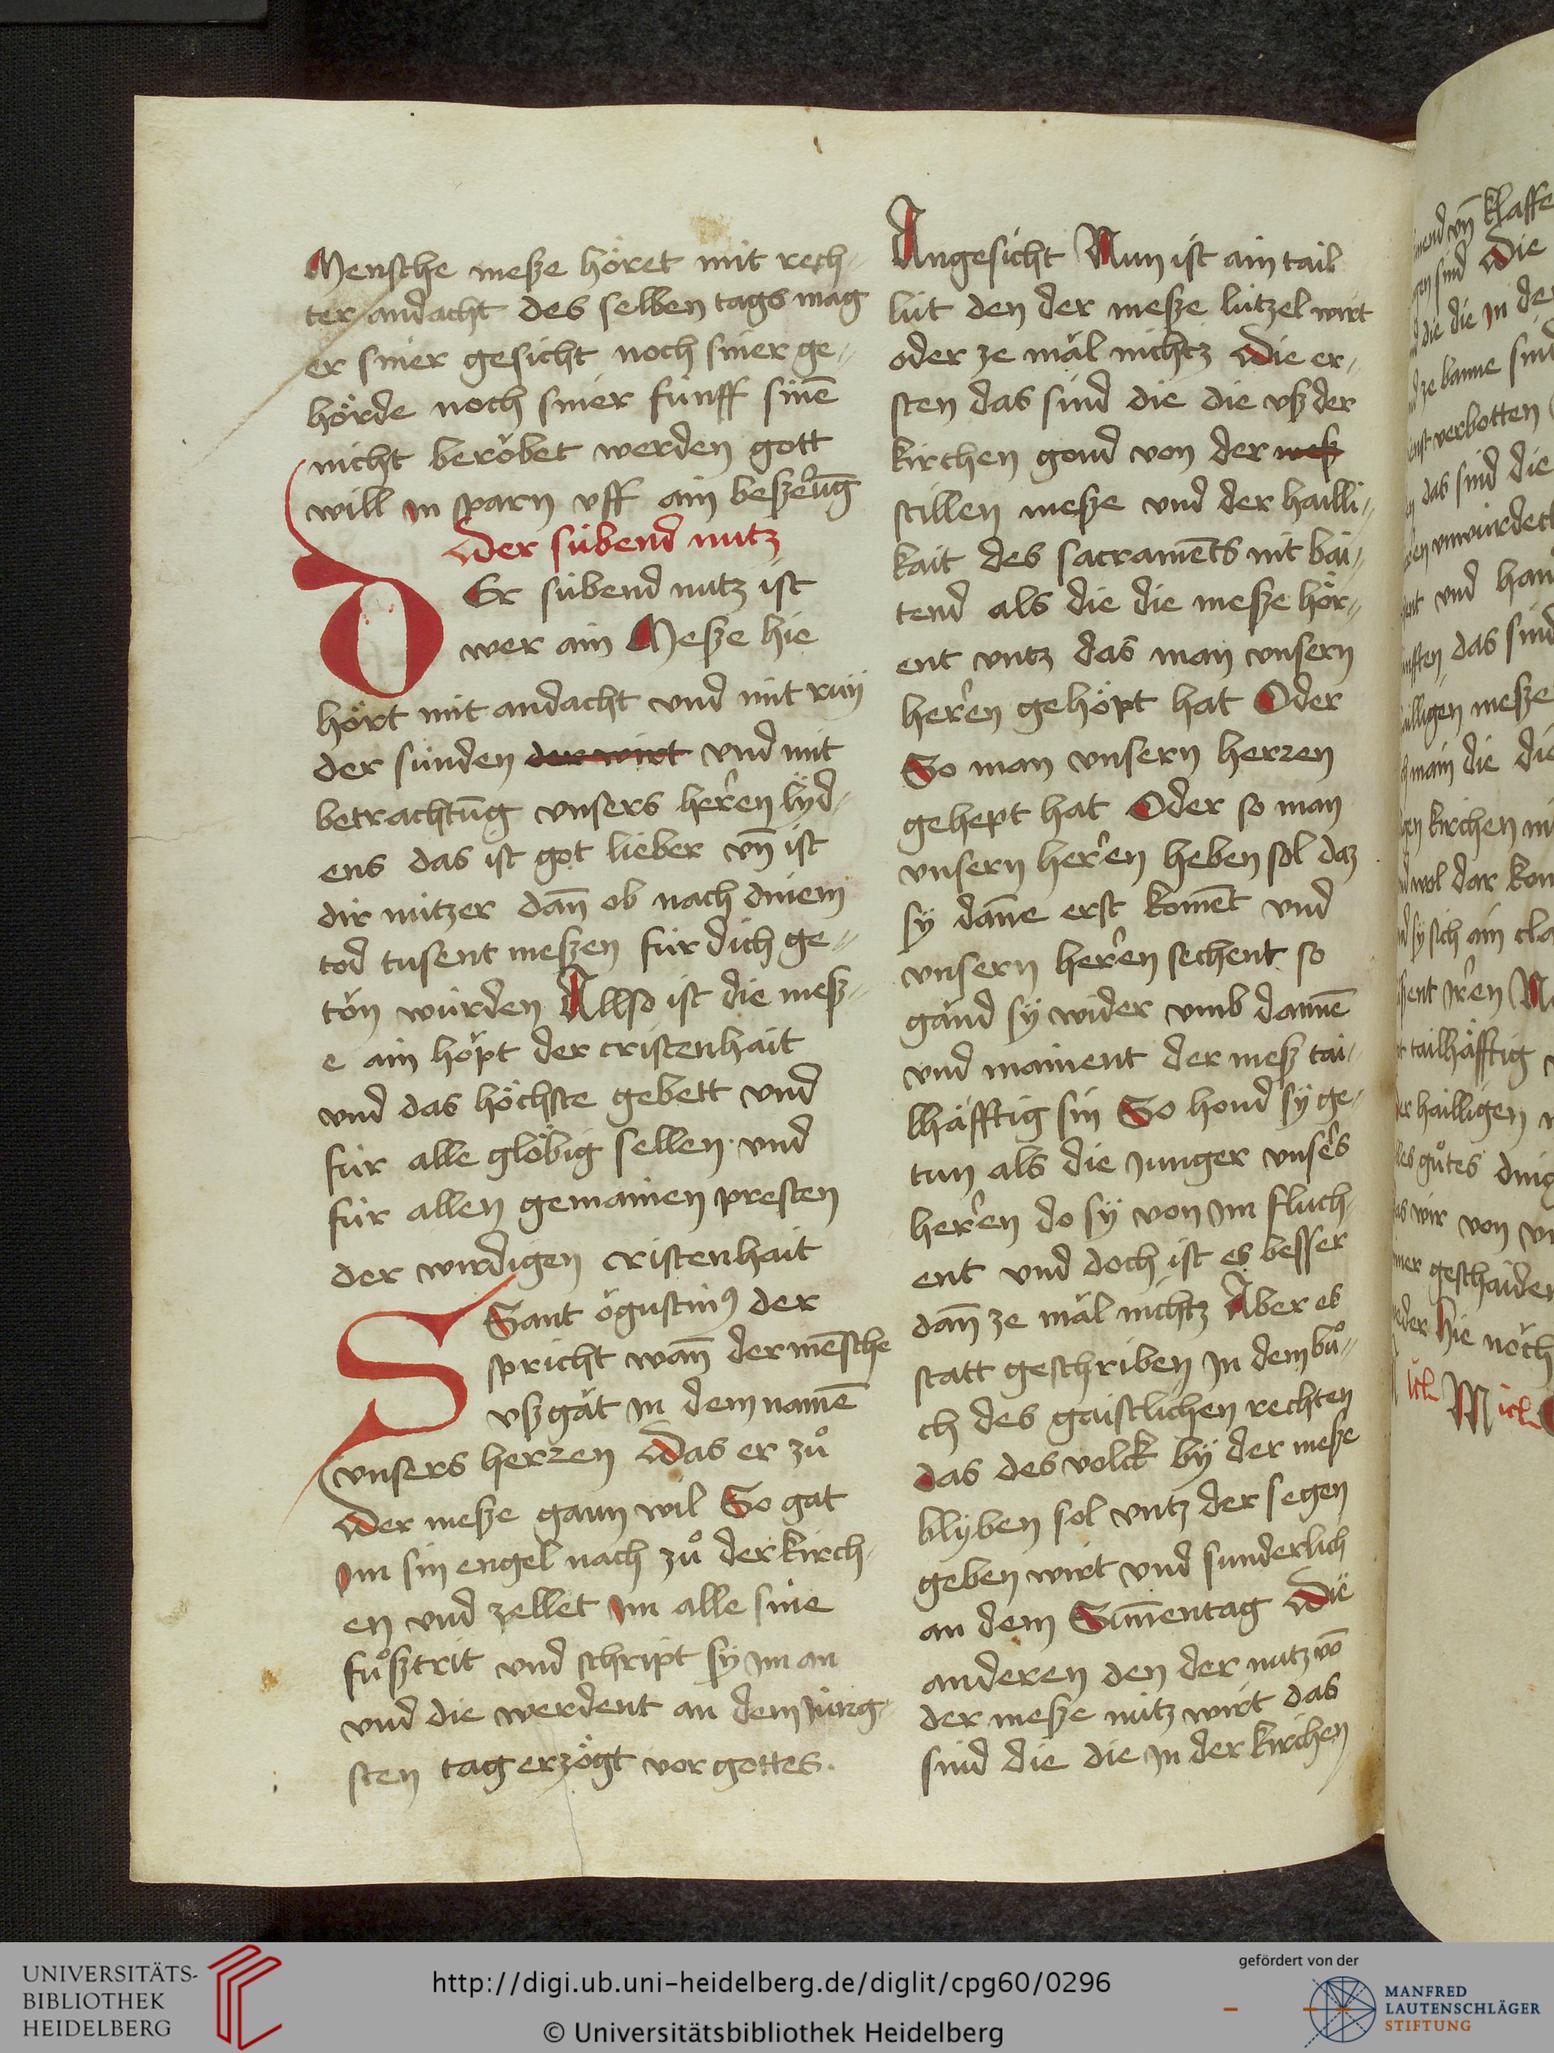 Mensche mesze höret mit rech-
ter andacht des selben tags mag
er siner gesicht noch siner ge-
hörde noch siner fúnff sinē
nicht beröbet werden gott
will in sparn vff ain beszerūg
Der súbend nutz
DEr súbend nutz ist
wer ain Mesze hie
hört mit andacht vnd mit rúÿ
der súnden der wirt vnd mit
betrachtūg vnsers herren lÿd-
ens das ist got lieber vn̄ ist
dir nútzer dan̄ ob nach dinem
tod tusent meszen fúr dich ge-
tön wúrden Allso ist die mesz-
e ain höpt der cristenhait
vnd das höchste gebett vnd
fúr alle glöbig sellen vnd
fúr allen gemainen presten
der wirdigen cristenhait
Sant ögustin9 der
spricht wan̄ der mēsche
vszgät in dem namē
vnsers herren Das er zů
Der mesze gaun wil So gat
Im sin engel nach zů der kirch-
en vnd zellet Im alle sine
fůsztrit vnd schript sÿ im an
vnd die werdent an dem júng-
sten tag erzögt vor gottes.
Angesicht Nun ist ain tail
lút den der mesze lútzel wirt
oder ze mäl nichtz Die er-
sten das sind die die vsz der
kirchen gond von der mesz
stillen mesze vnd der hailli-
kait des sacramēts nit bai-
tend als die die mesze hör-
ent vntz das man vnsern
herren gehöpt hat Oder
So man vnsern herren
gehept hat Oder so man
vnsern herren heben sol daz
sÿ dāne erst komēt vnd
vnsern herren sechent so
gänd sÿ wider vmb dannē
vnd mainent der mesz tai-
lhäfftig sin So hond sÿ ge-
tun als die Junger vnsers
herren do sÿ von im fluch-
ent vnd doch ist es besser
dan̄ ze mäl nichtz Aber es
statt geschriben in dem bů-
ch des gaistlichen rechten
das des volck bÿ der mesze
blÿben sol vntz der segen
geben wirt vnd sunderlich
an dem Sūnentag Die
anderen den der nutz vō
der mesze nútz wirt das
sind die die in der kirchen
UNIVERSITÄTS-
BIBLIOTHEK
HEIDELBERG
http://digi.ub.uni-heidelberg.de/diglit/cpg60/0296
© Universitätsbibliothek Heidelberg
gefördert von der
MANFRED
LAUTENSCHLÄGER
STIFTUNG